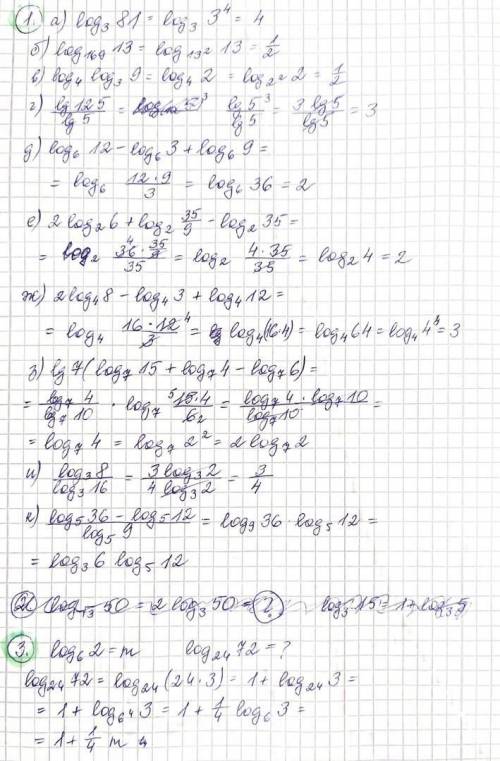 1. а) log₃ 81 = log₃ 3⁴ = 4
б) log₁₆₉ 13 = log₁₃² 13 = 1/2
в) log₄ log₃ 9 = log₄ 2 = log₂² 2 = 1/2
г) lg 125 / lg 5 = lg 5³ / lg 5 = 3 lg 5 / lg 5 = 3
д) log₆ 12 − log₆ 3 + log₆ 9 =
= log₆ (12·9)/3 = log₆ 36 = 2
е) 2 log₂ 6 + log₂ 35/9 − log₂ 35 =
= log₂ (36 · 35/9)/35 = log₂ (4·35)/35 = log₂ 4 = 2
ж) 2 log₄ 8 − log₄ 3 + log₄ 12 =
= log₄ (16·12)/3 = log₄ (16·4) = log₄ 64 = log₄ 4³ = 3
з) lg 7 (log₇ 15 + log₇ 4 − log₇ 6) =
= log₇ 4 / log₇ 10 · log₇ (15·4)/6 = (log₇ 4 · log₇ 10)/log₇ 10 =
= log₇ 4 = log₇ 2² = 2 log₇ 2
и) log₃ 8 / log₃ 16 = 3 log₃ 2 / 4 log₃ 2 = 3/4
к) (log₅ 36 − log₅ 12)/log₅ 9 = log₉ 36 · log₅ 12 =
= log₃ 6 log₅ 12
2. log√3 50 = 2 log₃ 50 = ? log₃ 15 = 1 + log₃ 5
3. log₆ 2 = m log₂₄ 72 = ?
log₂₄ 72 = log₂₄ (24·3) = 1 + log₂₄ 3 =
= 1 + log₆⁴ 3 = 1 + 1/4 log₆ 3 =
= 1 + 1/4 m